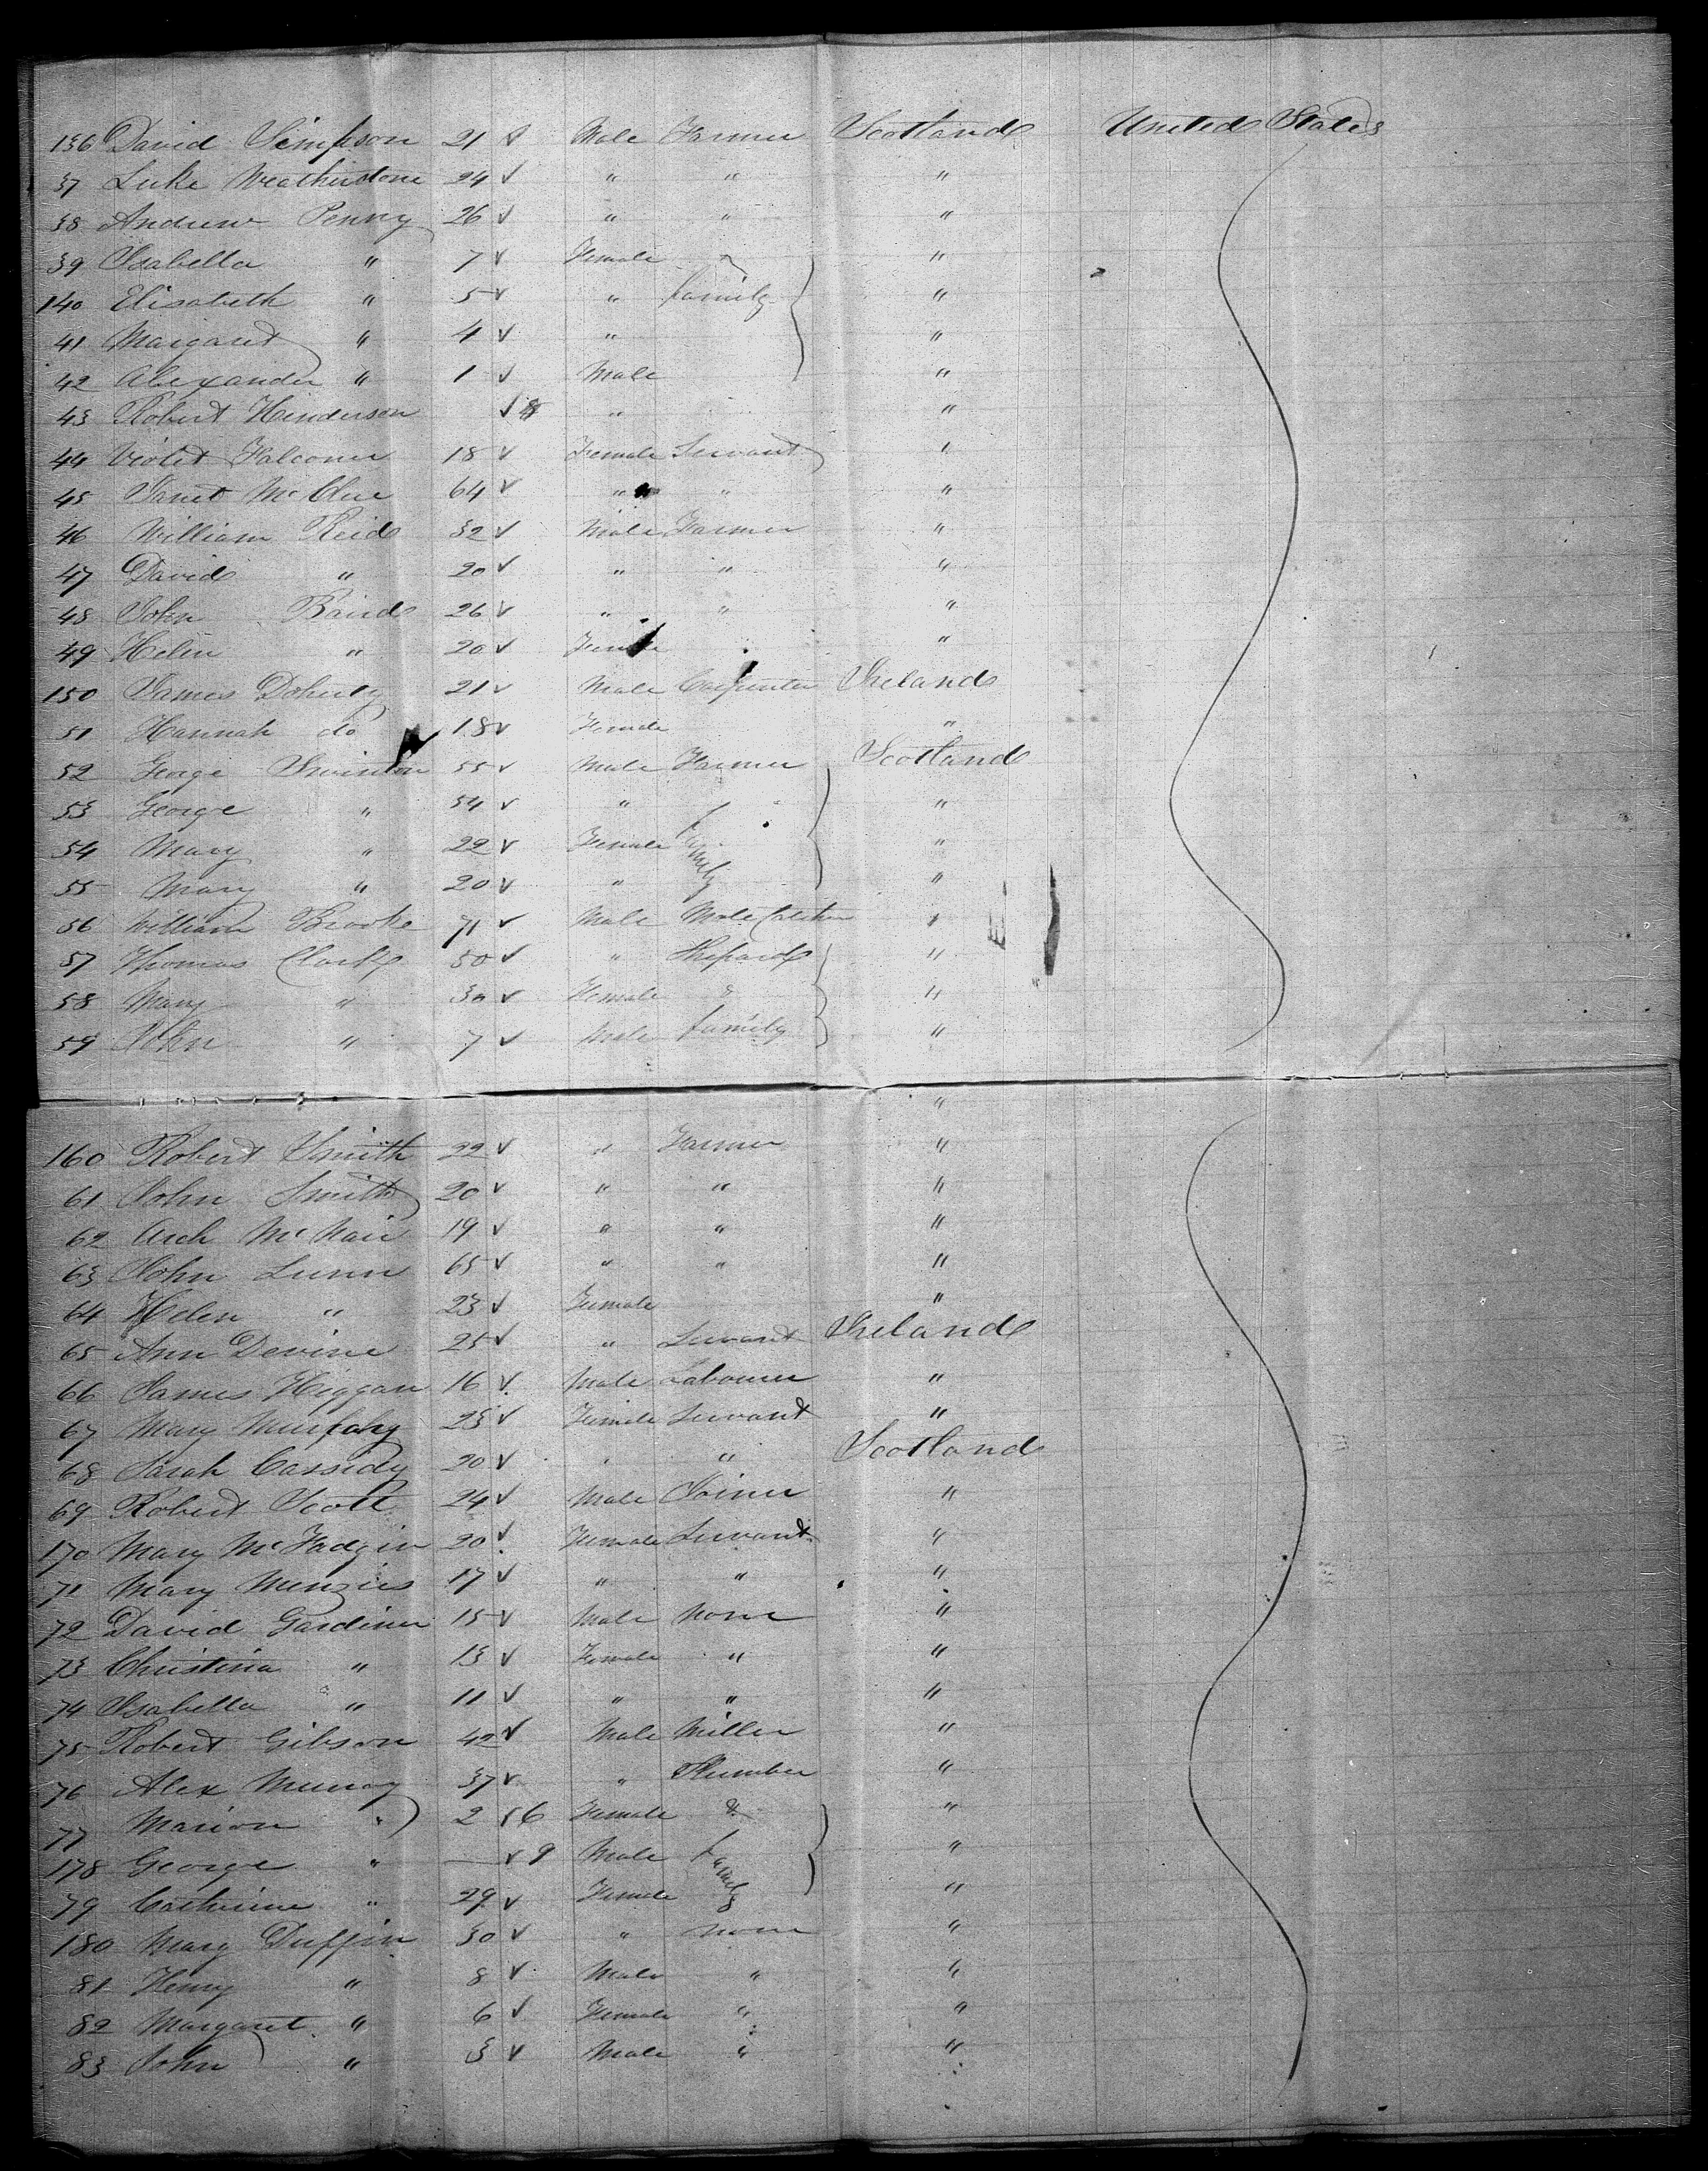 136 David Simpson 21 ✓ Male Farmer Scotland United States
37 Luke Weatherstone 24 ✓ " " "
38 Andrew Penny 26 ✓ " " "
39 Isabella " 7 ✓ Female & "
140 Elisabeth " 5 ✓ " family "
41 Margaret " 4 ✓ " "
42 Alexander " 1 ✓ Male "
43 Robert Henderson ✓ 8 " "
44 Violet Falconer 18 ✓ Female Servant "
45 Janet McClue 64 ✓ " " "
46 William Reid 32 ✓ Male Farmer "
47 David " 20 ✓ " " "
48 John Baird 26 ✓ " " "
49 Helen " 20 ✓ Female "
150 James Doherty 21 ✓ Male Carpenter Ireland
51 Hannah do 18 ✓ Female "
52 George Swinton 55 ✓ Male Farmer Scotland
53 George " 54 ✓ " "
54 Mary " 22 ✓ Female family "
55 Mary " 20 ✓ " "
56 William Brooke 71 ✓ Male Mole "
57 Thomas Clark 50 ✓ " Shepard "
58 Mary " 30 ✓ Female & "
59 John " 7 ✓ Male family "
"
160 Robert Smith 22 ✓ " Farmer "
61 John Smith 20 ✓ " " "
62 Arch McNair 19 ✓ " " "
63 John Lunn 65 ✓ " " "
64 Helen " 23 ✓ Female "
65 Ann Devine 25 ✓ " Servant Ireland
66 James Higgan 16 ✓ Male Labourer "
67 Mary Murphy 23 ✓ Female Servant "
68 Sarah Cassidy 20 ✓ " " Scotland
69 Robert Scott 24 ✓ Male Joiner "
170 Mary McFadgin 20 ✓ Female Servant "
71 Mary Menzies 17 ✓ " " "
72 David Gardiner 15 ✓ Male None "
73 Christina " 13 ✓ Female " "
74 Isabella " 11 ✓ " " "
75 Robert Gibson 42 ✓ Male Miller "
76 Alex Murray 37 ✓ " Plumber "
77 Marion " 2 56 Female & "
178 George " — ✓ 9 Male family "
79 Catherine " 29 ✓ Female "
180 Mary Duffin 30 ✓ " None "
81 Henry " 8 ✓ Male " "
82 Margaret " 6 ✓ Female " "
83 John " 3 ✓ Male " "